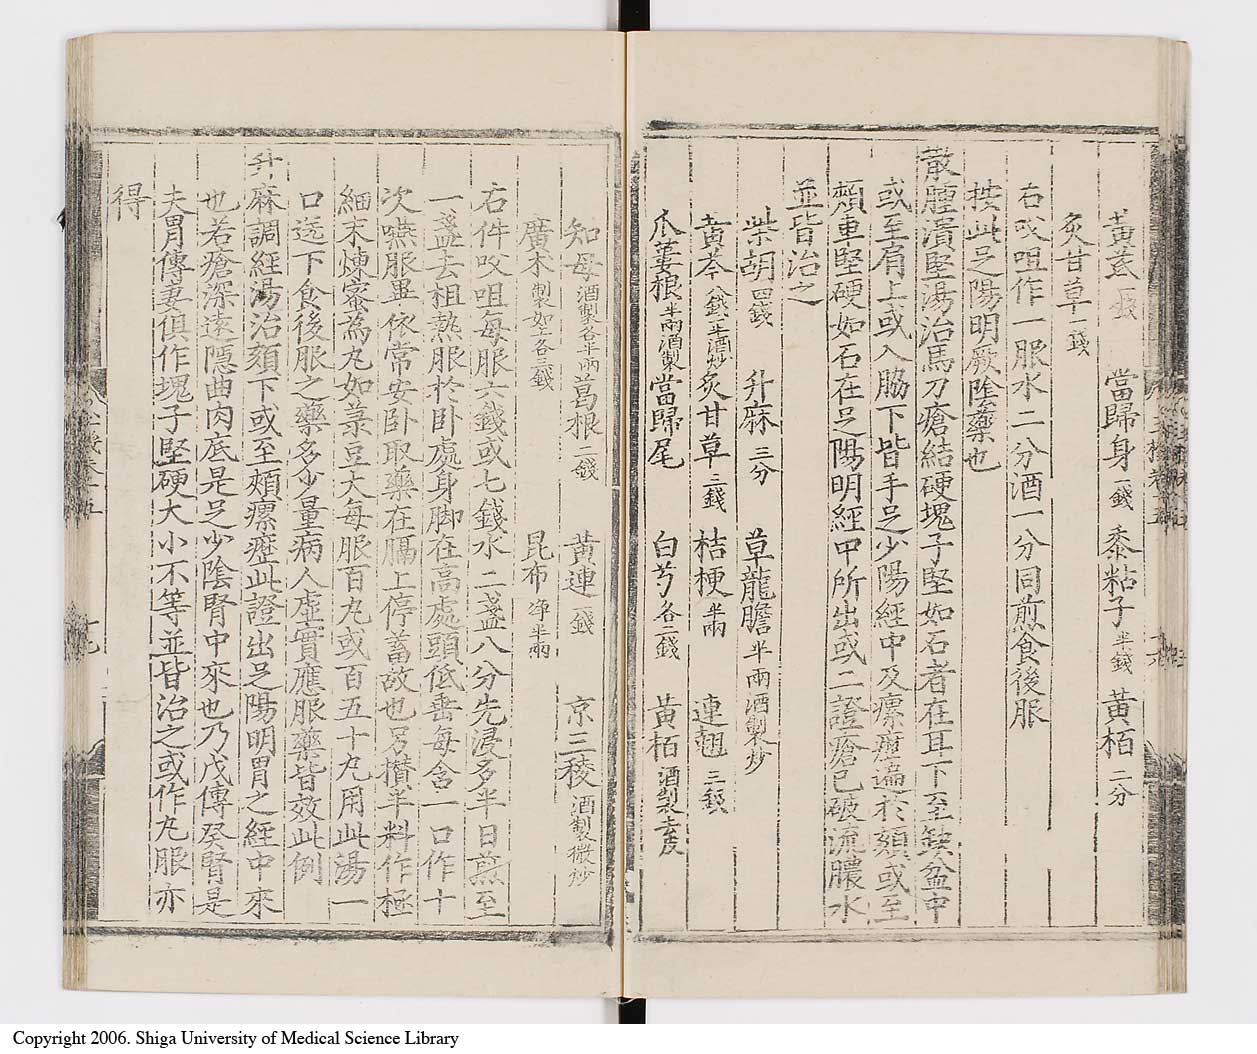 黃芪一錢 當歸身一錢 黍粘子半錢 黃栢二分
炙甘草一錢
右㕮咀作一服水二分酒一分同煎食後服
按此足陽明厥陰藥也
散腫潰堅湯治馬刀瘡結硬塊子堅如石者在耳下至缺盆中
或至肩上或入脇下皆手足少陽經中及瘰癧遍於頦或至
頰車堅硬如石在足陽明經中所出或二證瘡已破流膿水
並皆治之
柴胡四錢 升麻三分 草龍膽半兩酒製炒
黃芩八錢半酒炒 炙甘草二錢 桔梗半兩 連翹三錢
瓜蔞根半兩酒製 當歸尾 白芍各二錢 黃栢酒製
知母酒製各半兩 葛根二錢 黃連一錢 京三稜酒製微炒
廣朮製如上各三錢 昆布淨半兩
右件㕮咀每服六錢或七錢水二盞八分先浸多半日煎至
一盞去柤熱服於卧處身脚在高處頭低垂每含一口作十
次嚥服畢依常安卧取藥在膈上停蓄故也另攅半料作極
細末煉蜜為丸如菉豆大每服百丸或百五十丸用此湯一
口送下食後服之藥多少量病人虛實應服藥皆效此例
升麻調經湯治頦下或至頰瘰癧此證出足陽明胃之經中來
也若瘡深遠隱曲肉底是足少陰腎中來也乃戊傳癸腎是
夫胃傳妻俱作塊子堅硬大小不等並皆治之或作丸服亦
得
Copyright 2006. Shiga University of Medical Science Library